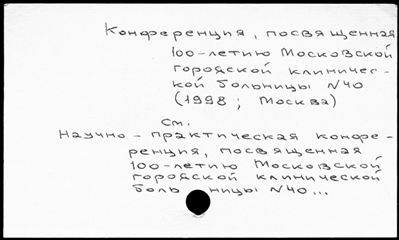 Конференция, посвященная
100-летию Московской
городской клиничес-
кой больницы №40
(1998; Москва)
см.
Научно-практическая конфе-
ренция, посвященная
100-летию Московской
городской клинической
больницы №40...